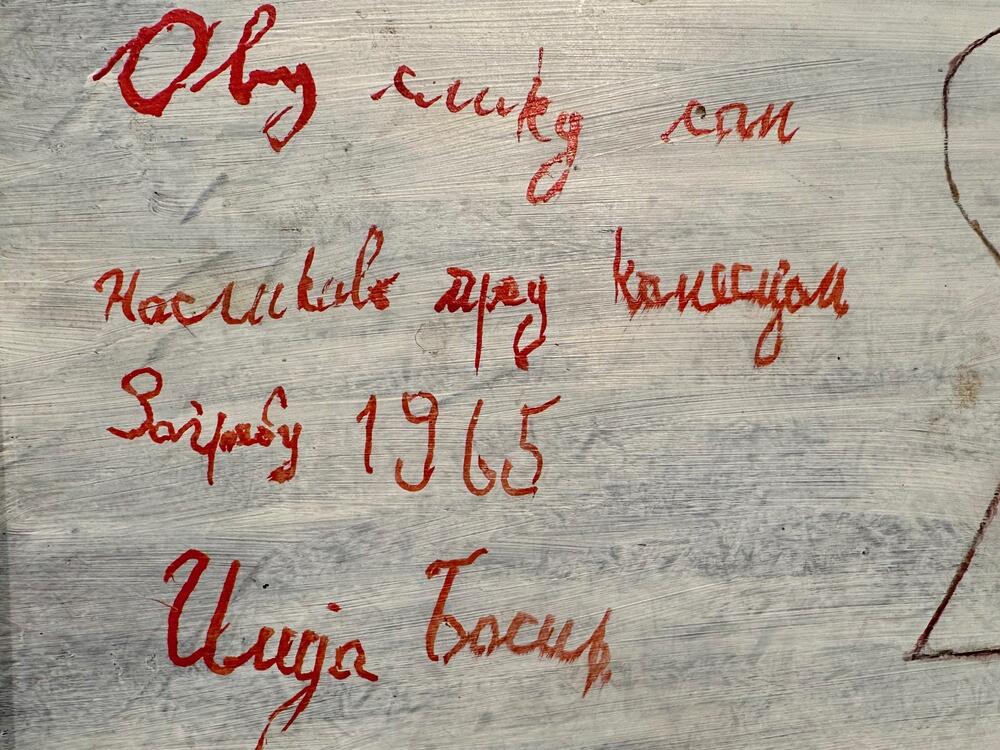 Ову слику сам
Насликаво пред
Загребу 1965
Илија Босиљ